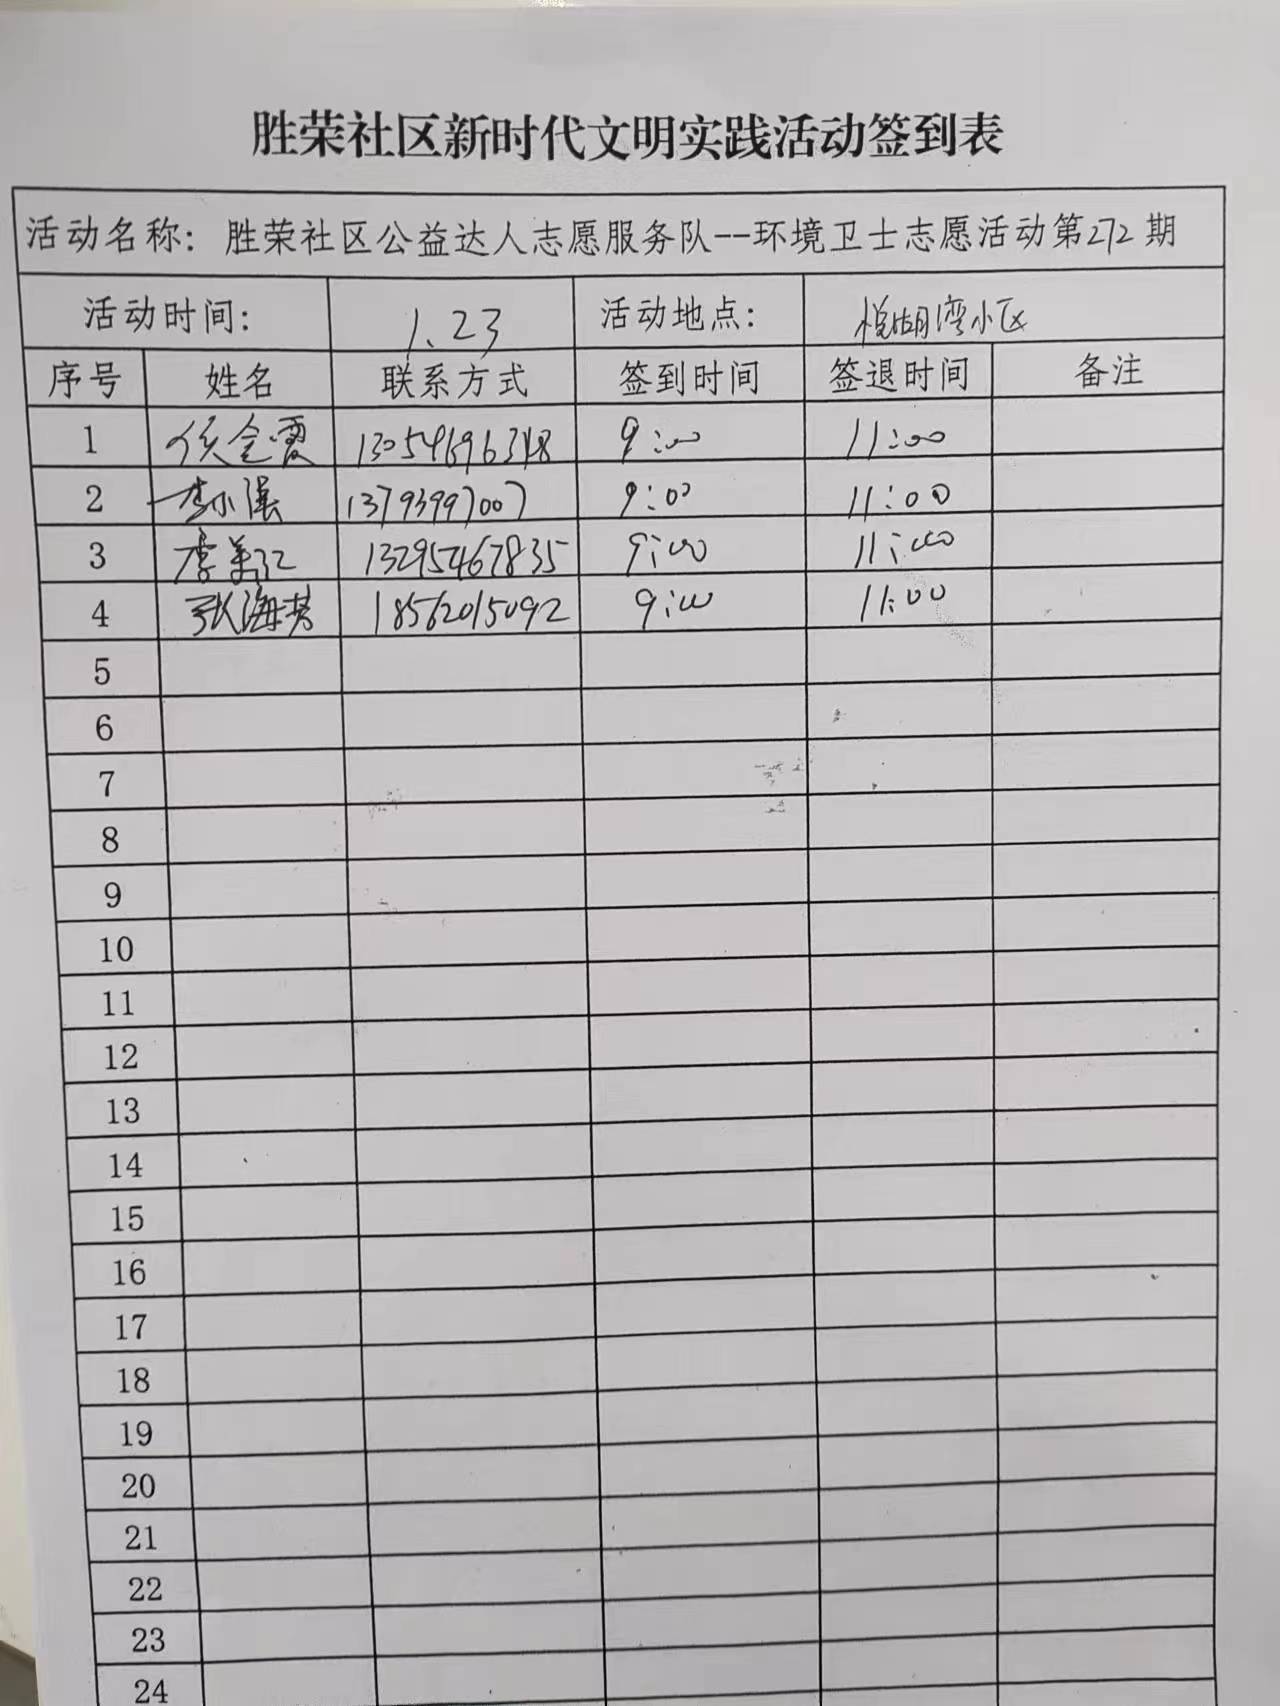 胜荣社区新时代文明实践活动签到表
活动名称：胜荣社区公益达人志愿服务队--环境卫士志愿活动第272期
活动时间： 1.23 活动地点： 悦湖湾小区
序号 姓名 联系方式 签到时间 签退时间 备注
1 侯金霞 13054696348 9:00 11:00
2 李小强 13793997007 9:00 11:00
3 李美江 13295467835 9:00 11:00
4 张海英 18562015092 9:00 11:00
5
6
7
8
9
10
11
12
13
14
15
16
17
18
19
20
21
22
23
24